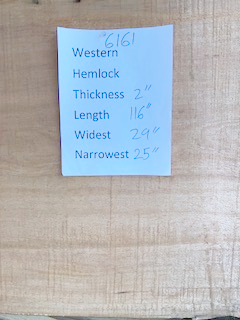 6161
Western
Hemlock
Thickness 2"
Length 116"
Widest 29"
Narrowest 25"